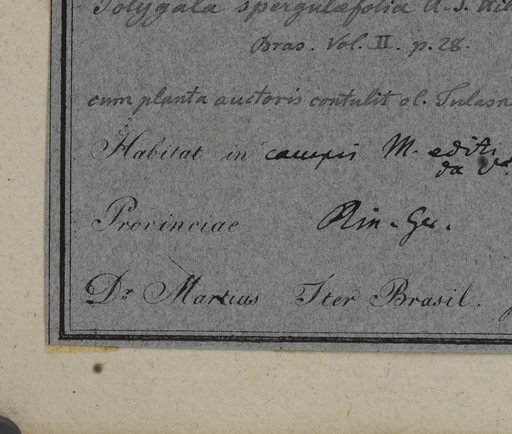 Polygala spergulæfolia A. S. Hil
Bras. Vol. II. p. 28.
cum planta auctoris contulit ol. Tulasn
Habitat in campis M. editi
da
Provinciae Min. Ger.
Dr Martius Iter Brasil.